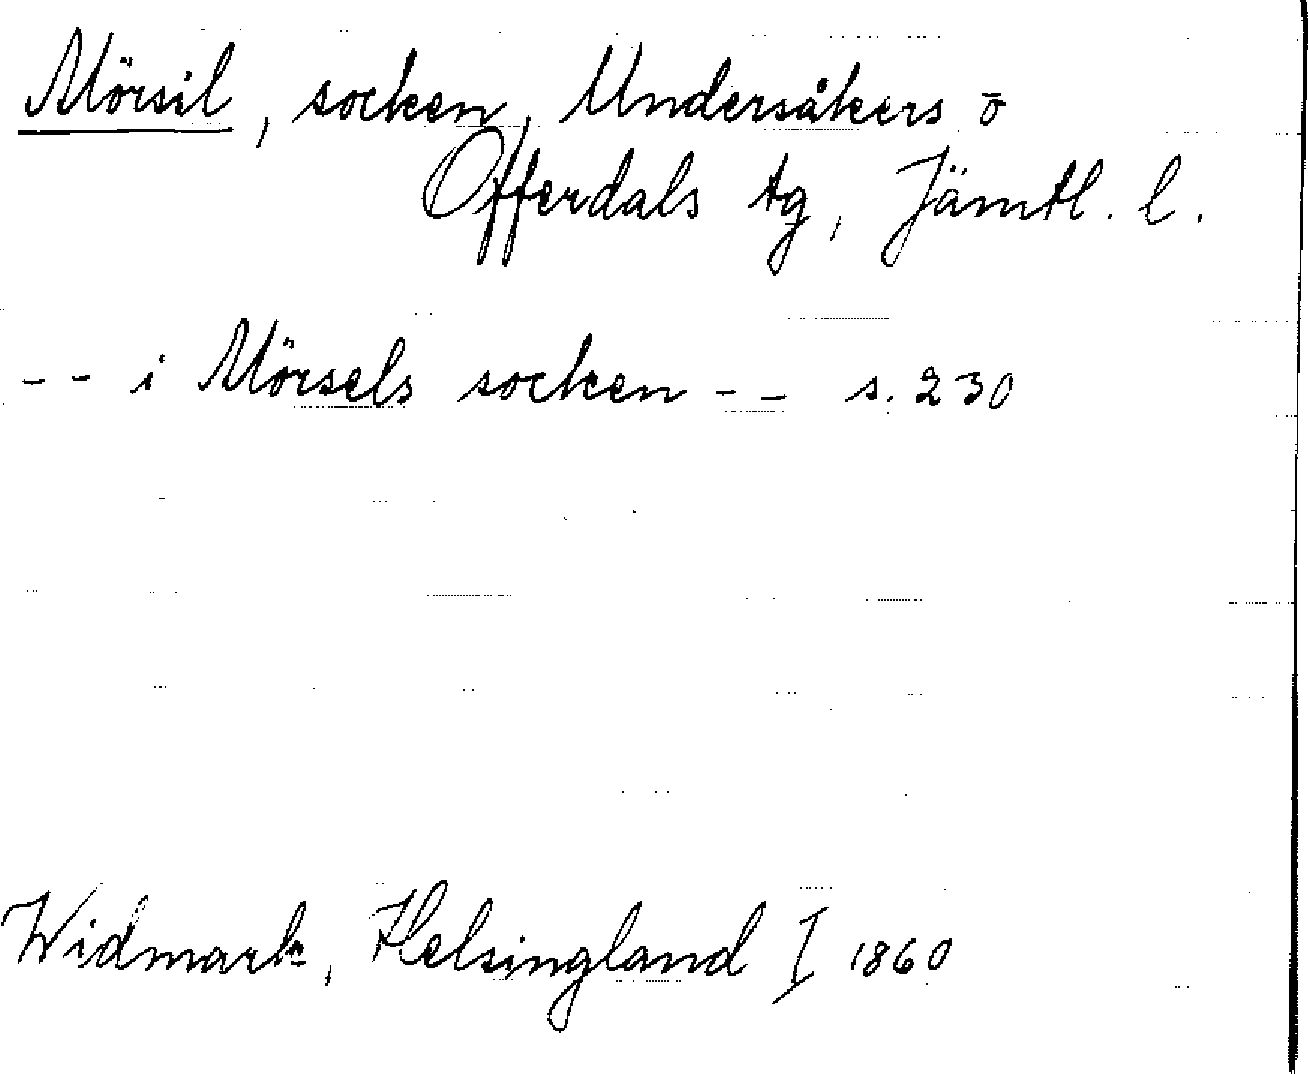 Mörsil, socken, Undersåkers o
Offerdals tg, Jämtl. l.
-- i Mörsels socken -- s. 230
Widmark, Helsingland I 1860